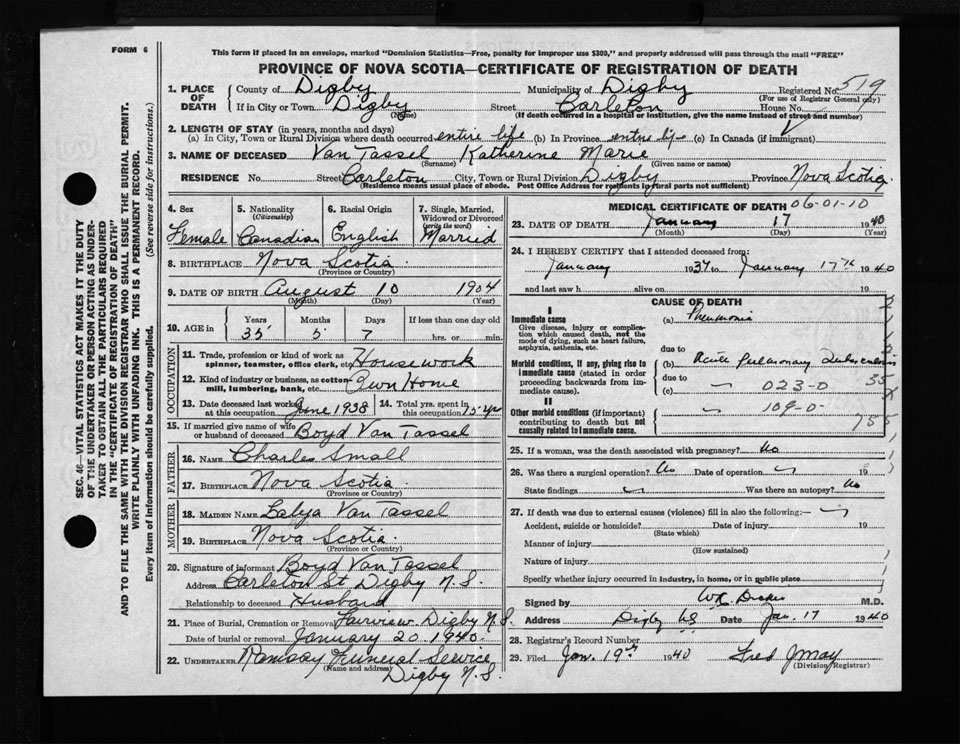 FORM 6
This form if placed in an envelope, marked "Dominion Statistics—Free, penalty for improper use $300," and properly addressed will pass through the mail "FREE"
PROVINCE OF NOVA SCOTIA—CERTIFICATE OF REGISTRATION OF DEATH
SEC. 46—VITAL STATISTICS ACT MAKES IT THE DUTY
OF THE UNDERTAKER OR PERSON ACTING AS UNDER-
TAKER TO OBTAIN ALL THE PARTICULARS REQUIRED
IN THE "CERTIFICATE OF REGISTRATION OF DEATH"
AND TO FILE THE SAME WITH THE DIVISION REGISTRAR WHO SHALL ISSUE THE BURIAL PERMIT.
WRITE PLAINLY WITH UNFADING INK. THIS IS A PERMANENT RECORD.
Every item of information should be carefully supplied. (See reverse side for instructions.)
1. PLACE OF DEATH
County of Digby Municipality of Digby Registered No. 519
(For use of Registrar General only)
If in City or Town Digby Street Carleton House No.
(Name) (If death occurred in a hospital or institution, give the name instead of street and number)
2. LENGTH OF STAY (in years, months and days)
(a) In City, Town or Rural Division where death occurred entire life (b) In Province entire life (c) In Canada (if immigrant)
3. NAME OF DECEASED Van Tassel Katherine Marie
(Surname) (Given name or names)
RESIDENCE No. Street Carleton City, Town or Rural Division Digby Province Nova Scotia
(Residence means usual place of abode. Post Office Address for residents in rural parts not sufficient)
4. Sex Female
5. Nationality (Citizenship) Canadian
6. Racial Origin English
7. Single, Married, Widowed or Divorced (write the word) Married
8. BIRTHPLACE Nova Scotia
(Province or Country)
9. DATE OF BIRTH August 10 1904
(Month) (Day) (Year)
10. AGE in Years Months Days If less than one day old
35 5 7 hrs. or min.
OCCUPATION
11. Trade, profession or kind of work as spinner, teamster, office clerk, etc. Housework
12. Kind of industry or business, as cotton-mill, lumbering, bank, etc. Own Home
13. Date deceased last worked at this occupation June 1938
14. Total yrs. spent in this occupation 15 yr
15. If married give name of wife or husband of deceased Boyd Van Tassel
FATHER
16. NAME Charles Small
17. BIRTHPLACE Nova Scotia
(Province or Country)
MOTHER
18. MAIDEN NAME Van Tassel
19. BIRTHPLACE Nova Scotia
(Province or Country)
20. Signature of informant Boyd Van Tassel
Address Carleton St. Digby N.S.
Relationship to deceased Husband
21. Place of Burial, Cremation or Removal Fairview Digby N.S.
Date of burial or removal January 20 1940
22. UNDERTAKER Ramsay Funeral Service
(Name and address) Digby N.S.
MEDICAL CERTIFICATE OF DEATH 06-01-10
23. DATE OF DEATH January 17 1940
(Month) (Day) (Year)
24. I HEREBY CERTIFY that I attended deceased from:
January 1937 to January 17th 1940
and last saw h alive on 19
CAUSE OF DEATH
I
Immediate cause
Give disease, injury or complication which caused death, not the mode of dying, such as heart failure, asphyxia, asthenia, etc.
(a) Pneumonia
due to
Morbid conditions, if any, giving rise to immediate cause (stated in order proceeding backwards from immediate cause)
(b) Acute Pulmonary Tuberculosis
due to 023-0 35
(c)
II
Other morbid conditions (if important) contributing to death but not causally related to immediate cause.
109-0
755
25. If a woman, was the death associated with pregnancy? No
26. Was there a surgical operation? No Date of operation 19
State findings Was there an autopsy? No
27. If death was due to external causes (violence) fill in also the following:—
Accident, suicide or homicide? Date of injury 19
(State which)
Manner of injury
(How sustained)
Nature of injury
Specify whether injury occurred in industry, in home, or in public place
Signed by M.D.
Address Digby NS Date Jan. 17 1940
28. Registrar's Record Number
29. Filed Jan. 19th 1940 Fred J May
(Division Registrar)